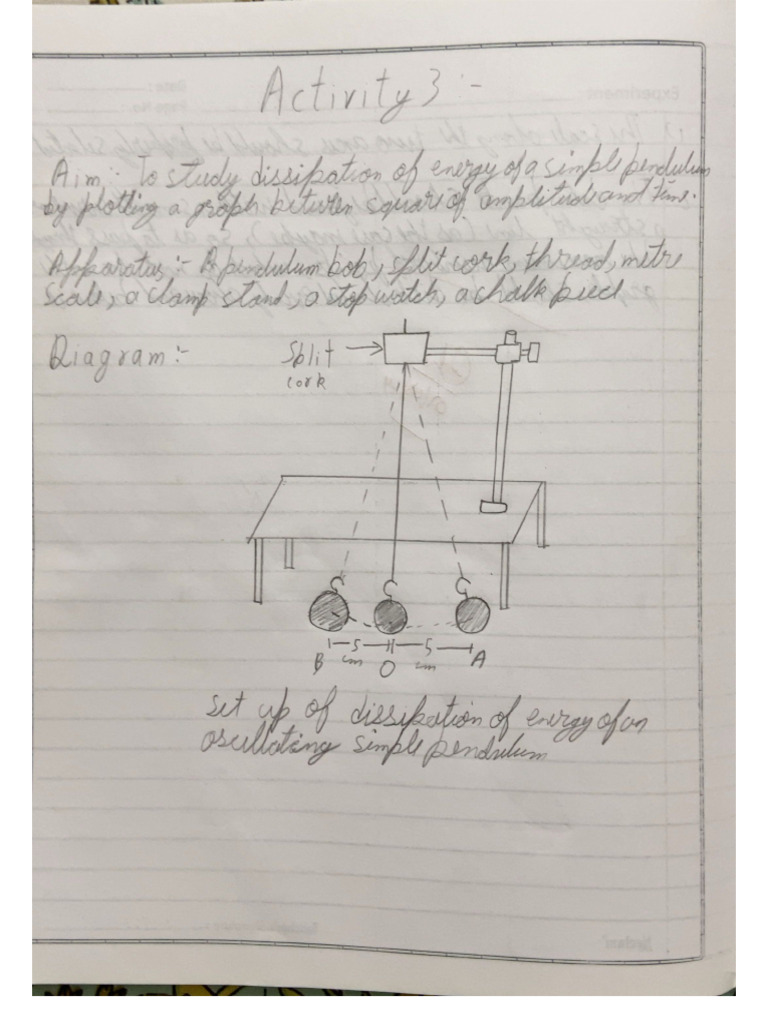 Activity 3 :-
Aim :- To study dissipation of energy of a simple pendulum
by plotting a graph between square of amplitude and time.
Apparatus :- A pendulum bob, split cork, thread, metre
scale, a clamp stand, a stop watch, a chalk piece
Diagram :-
Split
cork
5 5
B cm O cm A
Set up of dissipation of energy of an
oscillating simple pendulum